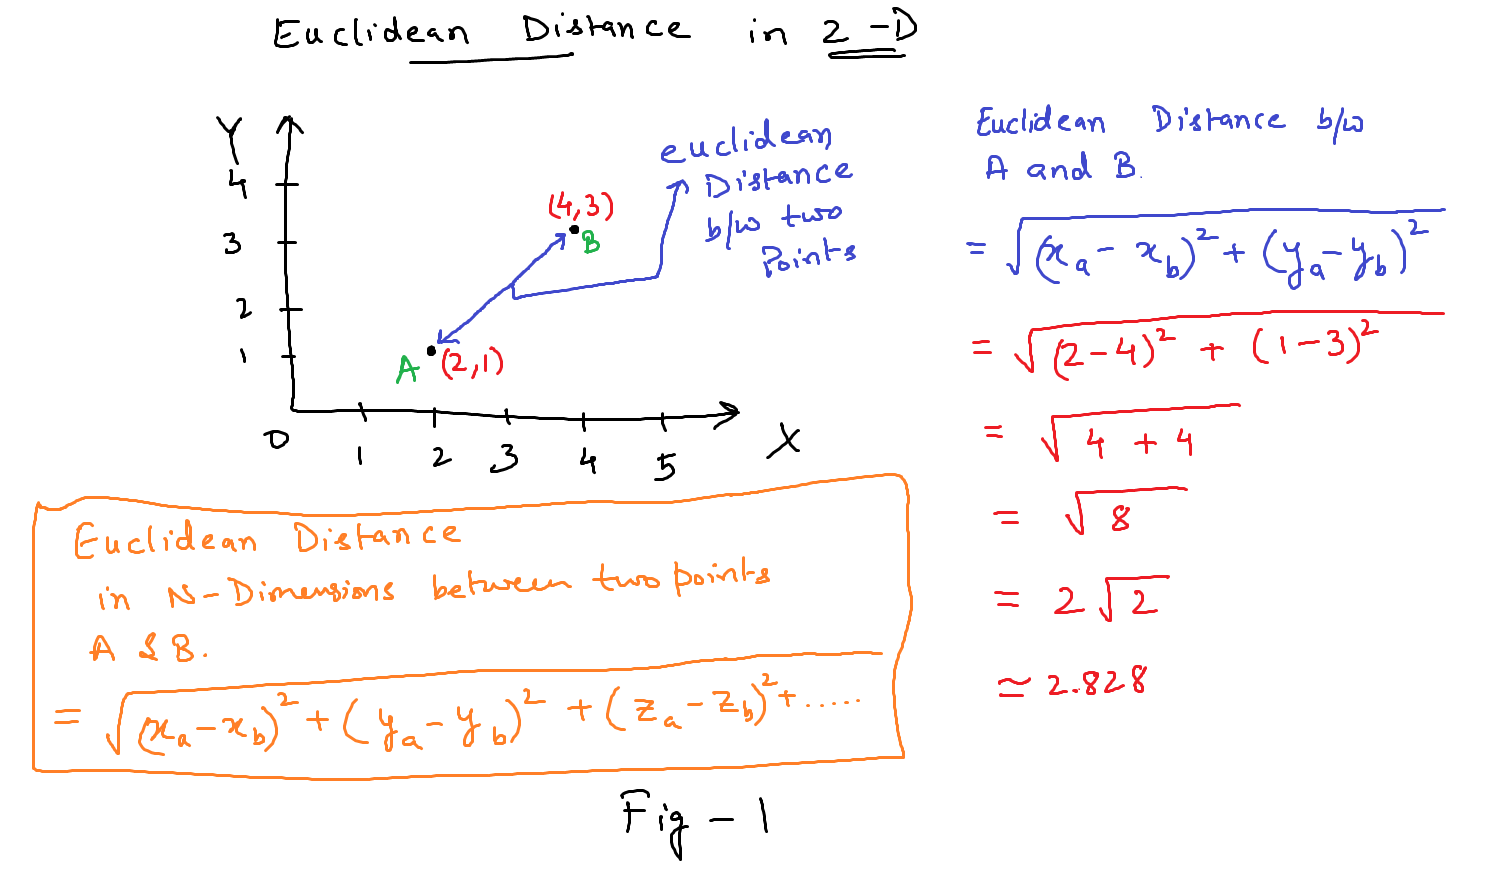 Euclidean Distance in 2-D
Y
4
3
2
1
0
1 2 3 4 5
X
(4,3)
B
A (2,1)
euclidean
Distance
b/w two
Points
Euclidean Distance b/w
A and B.
= √(x_a - x_b)² + (y_a - y_b)²
= √(2-4)² + (1-3)²
= √4 + 4
= √8
= 2√2
≃ 2.828
Euclidean Distance
in N-Dimensions between two points
A & B.
= √(x_a - x_b)² + (y_a - y_b)² + (z_a - z_b)² + .....
Fig - 1